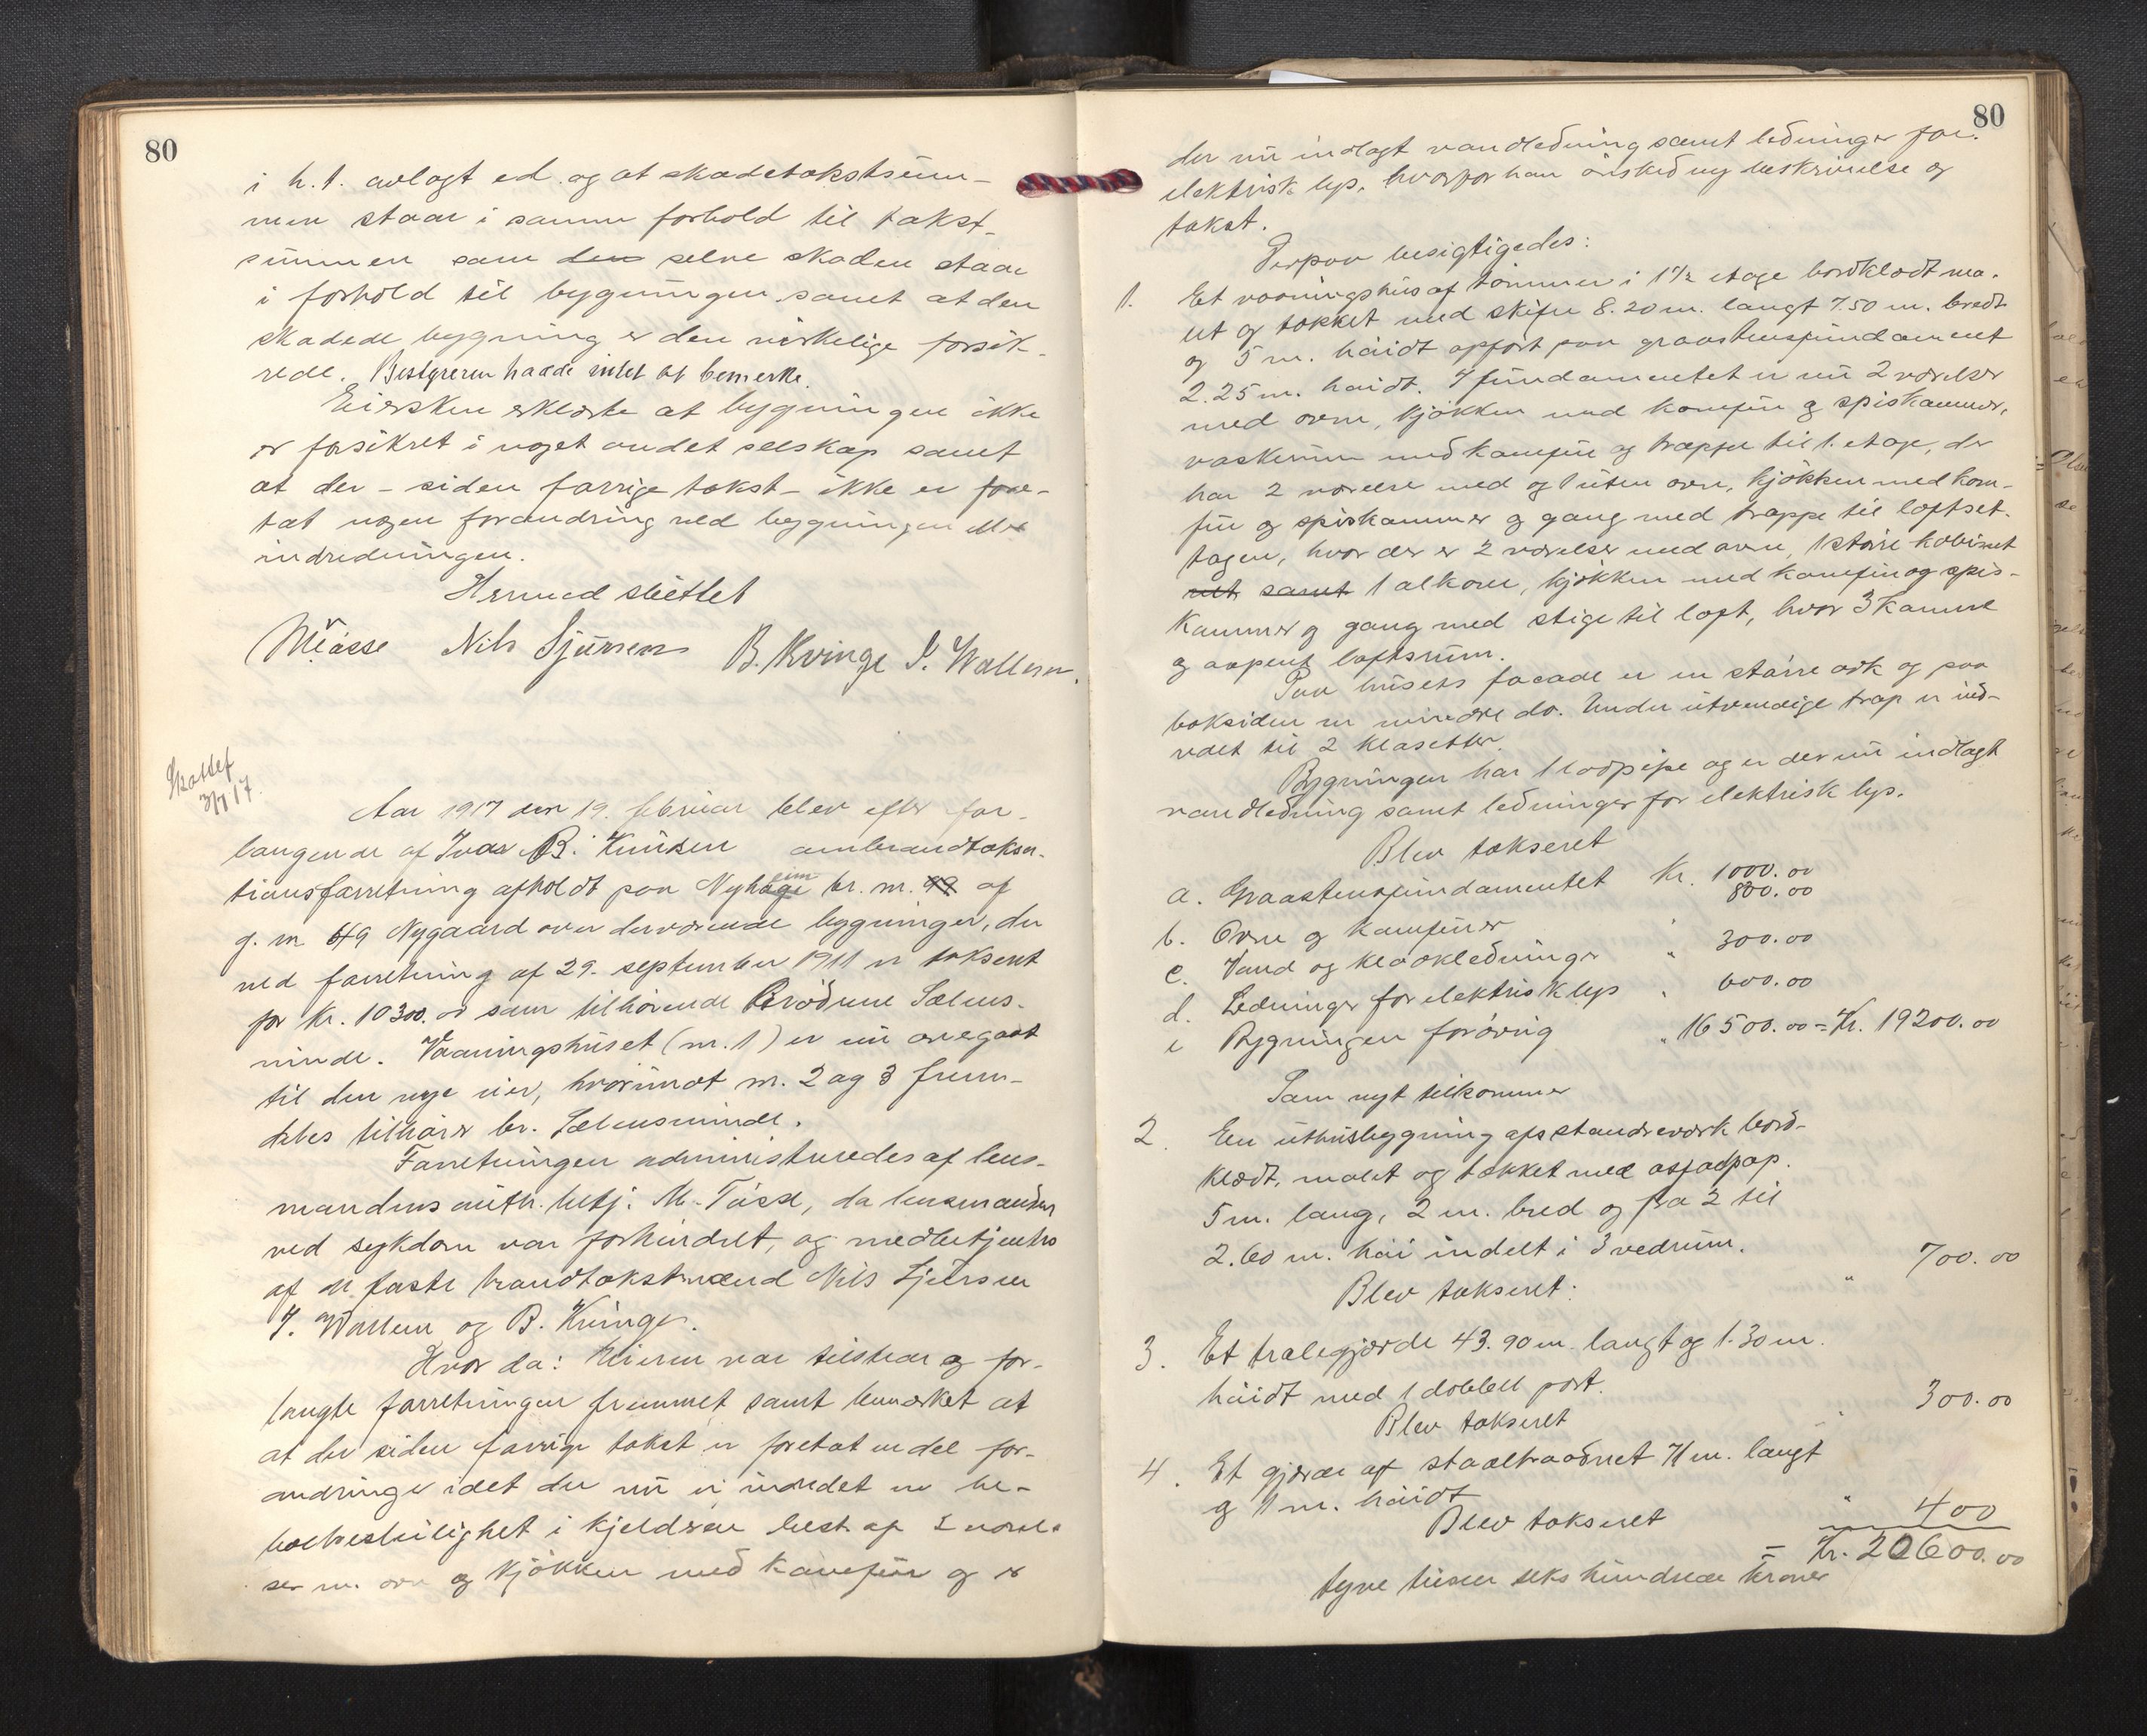 80
i h.t. avlagt ed. og at skadetakstsum-
men staar i samme forhold til takst-
summen som den selve skaden staar
i forhold til bygningen samt at den
skadede bygning er den virkelige forsik-
rede. Bestyreren hadde intet at bemerke.
Eiersken erklærte at bygningen ikke
er forsikret i noget andet selskap samt
at der - siden forrige takst - ikke er fore-
tat nogen forandring ved bygningen eller
indredningen.
Hermed sluttet
Nils Sjursen B. Kvinge I. Wallem.
Skattef
3/7 17.
Aar 1917 den 19. februar blev efter for-
langende af Ivar B. Knudsen ombrandtaksa-
tionsforretning afholdt paa Nyheim br. nr. 49 af
g. nr 49 Nygaard over derværende bygninger, der
ved forretning af 29. september 1911 er taksert
for Kr. 10300.00 som tilhørende Brødrene Sælens-
minde. Vaaningshuset (nr. 1) er nu overgaat
til den nye eier, hvorimot nr. 2 og 3 frem-
deles tilhører br. Sælensminde.
Forretningen administreredes af lens-
mandens auth. betj. M. Taasse, da lensmanden
ved sykdom var forhindret, og medbetjentes
af de faste brandtakstmænd Nils Sjursen
I. Wallem og B. Kvinge.
Hvor da: Eieren var tilstede og for-
langte forretningen fremmet samt bemerket at
at der siden forrige takst er foretat endel for-
andringer idet der nu er indredet en be-
boelsesleilighet i kjelderen best. af 2 værel-
ser m. ovn og kjøkken med komfur og er
80
der nu indlagt vandledning samt ledninger for
elektrisk lys, hvorfor han ønsked ny beskrivelse og
takst.
Derpaa besigtigedes:
1. Et vaaningshus af tømmer i 1 1/2 etage bordklædt ma-
let og tækket med skifer 8.20 m. langt 7.50 m. bredt
og 5 m. høidt opført paa graastensfundament
2.25 m. høidt. I fundamentet er nu 2 værelser
med ovn, kjøkken med komfur og spiskammer,
vaskerum med komfur og trappe til 1. etage, der
har 2 værelse med og 1 uten ovn, kjøkken med kom-
fur og spiskammer og gang med trappe til loftset-
tagen, hvor der er 2 værelser med ovn, 1 større kabinet
samt 1 alkove, kjøkken med komfur og spis-
kammer og gang med stige til loft, hvor 3 kamre
og aapent loftsrum.
Paa husets facade er en større ark og paa
baksiden en mindre do. Under utvendige trap er ind-
redet til 2 klosetter.
Bygningen har 1 lodpipe og er der nu indlagt
vandledning samt ledninger for elektrisk lys.
Blev takseret
a. Graastensfundamentet Kr. 1000.00
b. Ovne og komfurer 800.00
c. Vand og kloakledninger " 300.00
d. Ledninger for elektrisk lys " 600.00
e Bygningen forøvrig " 16500.00 = Kr. 19200.00
Som nyt tilkommer
2. En uthusbygning af standerverk bord-
klædt, malet og tækket med asfaltpap.
5 m. lang, 2 m. bred og fra 2 til
2.60 m. høi indelt i 3 vedrum.
Blev takseret: " 700.00
3. Et tralegjærde 43.90 m. langt og 1.30 m.
høidt med 1 dobbelt port.
Blev takseret " 300.00
4. Et gjærde af staaltraadnet 71 m. langt
og 1 m. høidt
Blev takseret " 400
= Kr. 20600.00
tyve tusen seks hundrede kroner